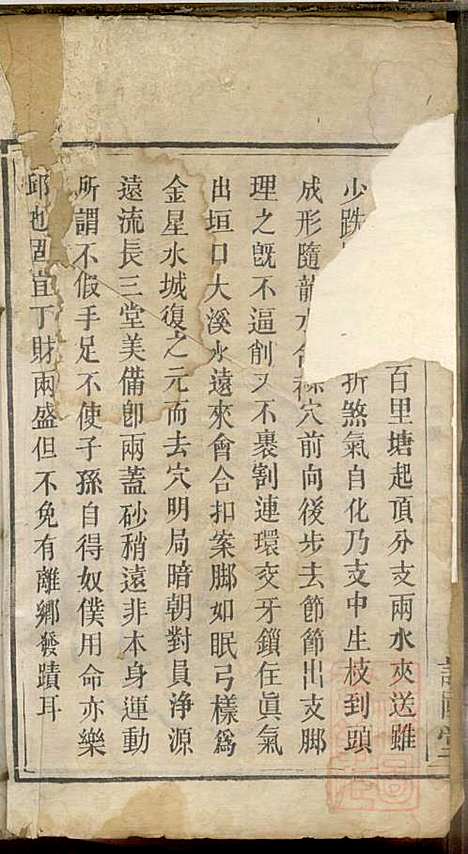 百里塘起頂分支兩水夾送雖
少跌折煞氣自化乃支中生枝到頭
成形隨龍水合穴前向後步去節節出支脚
理之旣不逼削又不裹割連環交牙鎖住眞氣
出垣口大溪水遠來會合扣案脚如眠弓樣爲
金星水城復之元而去穴明局暗朝對員淨源
遠流長三堂美備卽兩蓋砂稍遠非本身運動
所謂不假手足不使子孫自得奴僕用命亦樂
邱也固宜丁財兩盛但不免有離鄉發蹟耳